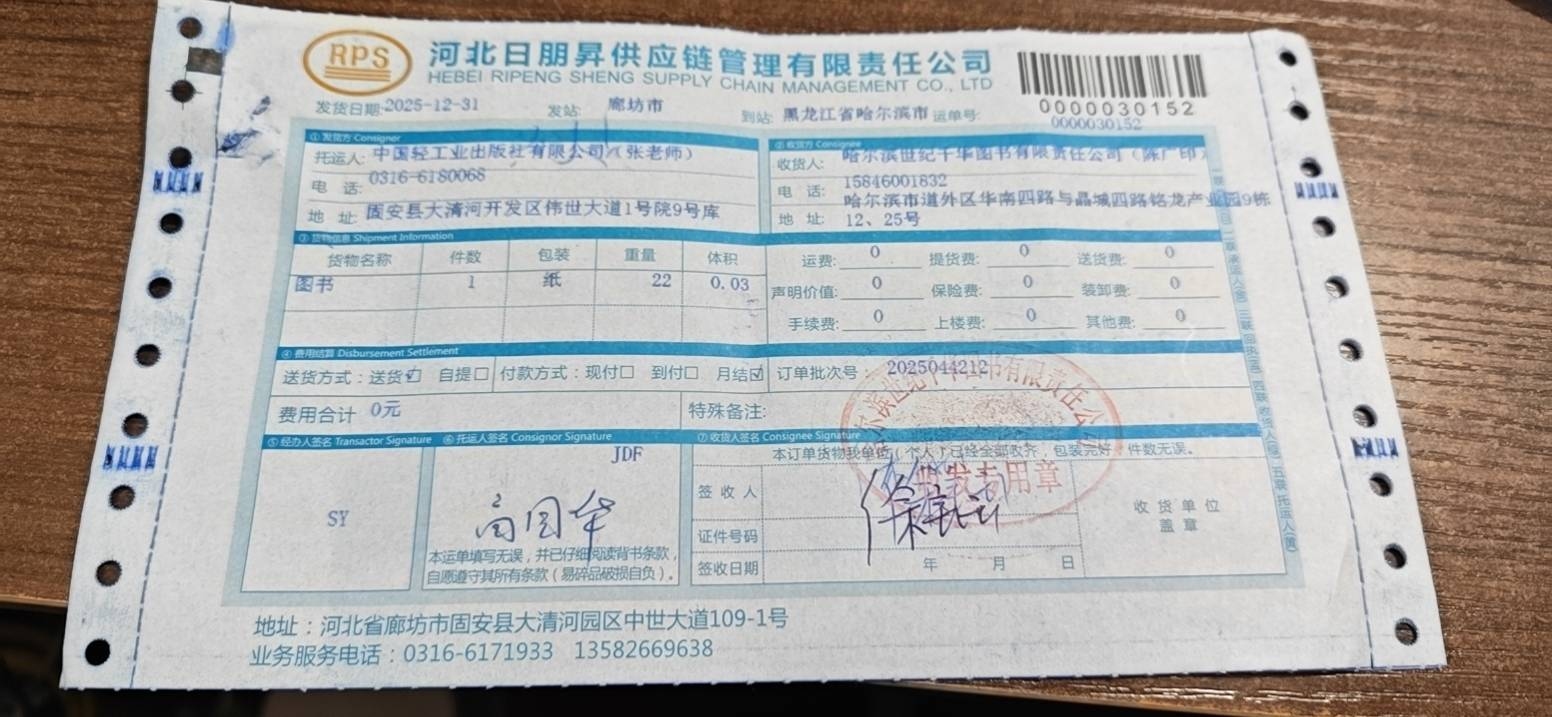 RPS
河北日朋昇供应链管理有限责任公司
HEBEI RIPENG SHENG SUPPLY CHAIN MANAGEMENT CO., LTD
0000030152
发货日期: 2025-12-31 发站: 廊坊市 到站: 黑龙江省哈尔滨市 运单号: 0000030152
①发货方 Consignor ②收货方 Consignee
托运人: 中国轻工业出版社有限公司（张老师） 收货人: 哈尔滨世纪千华图书有限责任公司（陈广印）
电 话: 0316-6180068 电 话: 15846001832
地 址: 固安县大清河开发区伟世大道1号院9号库 地 址: 哈尔滨市道外区华南四路与晶城四路铭龙产业园9栋
12、25号
③货物信息 Shipment Information
货物名称 件数 包装 重量 体积 运费: 0 提货费: 0 送货费: 0
图书 1 纸 22 0.03 声明价值: 0 保险费: 0 装卸费: 0
手续费: 0 上楼费: 0 其他费: 0
④费用结算 Disbursement Settlement
送货方式：送货☑ 自提☐ 付款方式：现付☐ 到付☐ 月结☑ 订单批次号： 2025044212
费用合计 0元 特殊备注:
⑤经办人签名 Transactor Signature ⑥托运人签名 Consignor Signature ⑦收货人签名 Consignee Signature
JDF 本订单货物我单位（个人）已经全部收齐，包装完好，件数无误。
SY 高国华 签 收 人 收 货 单 位
盖 章
本运单填写无误，并已仔细阅读背书条款， 证件号码
自愿遵守其所有条款（易碎品破损自负）。 签收日期 年 月 日
专用章
地址：河北省廊坊市固安县大清河园区中世大道109-1号
业务服务电话：0316-6171933 13582669638